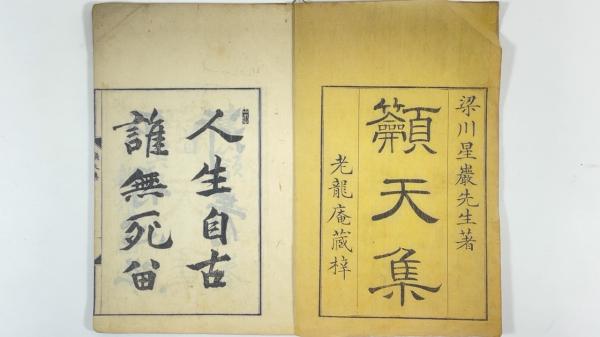 梁川星巖先生著
籲天集
老龍庵藏梓
人生自古
誰無死留